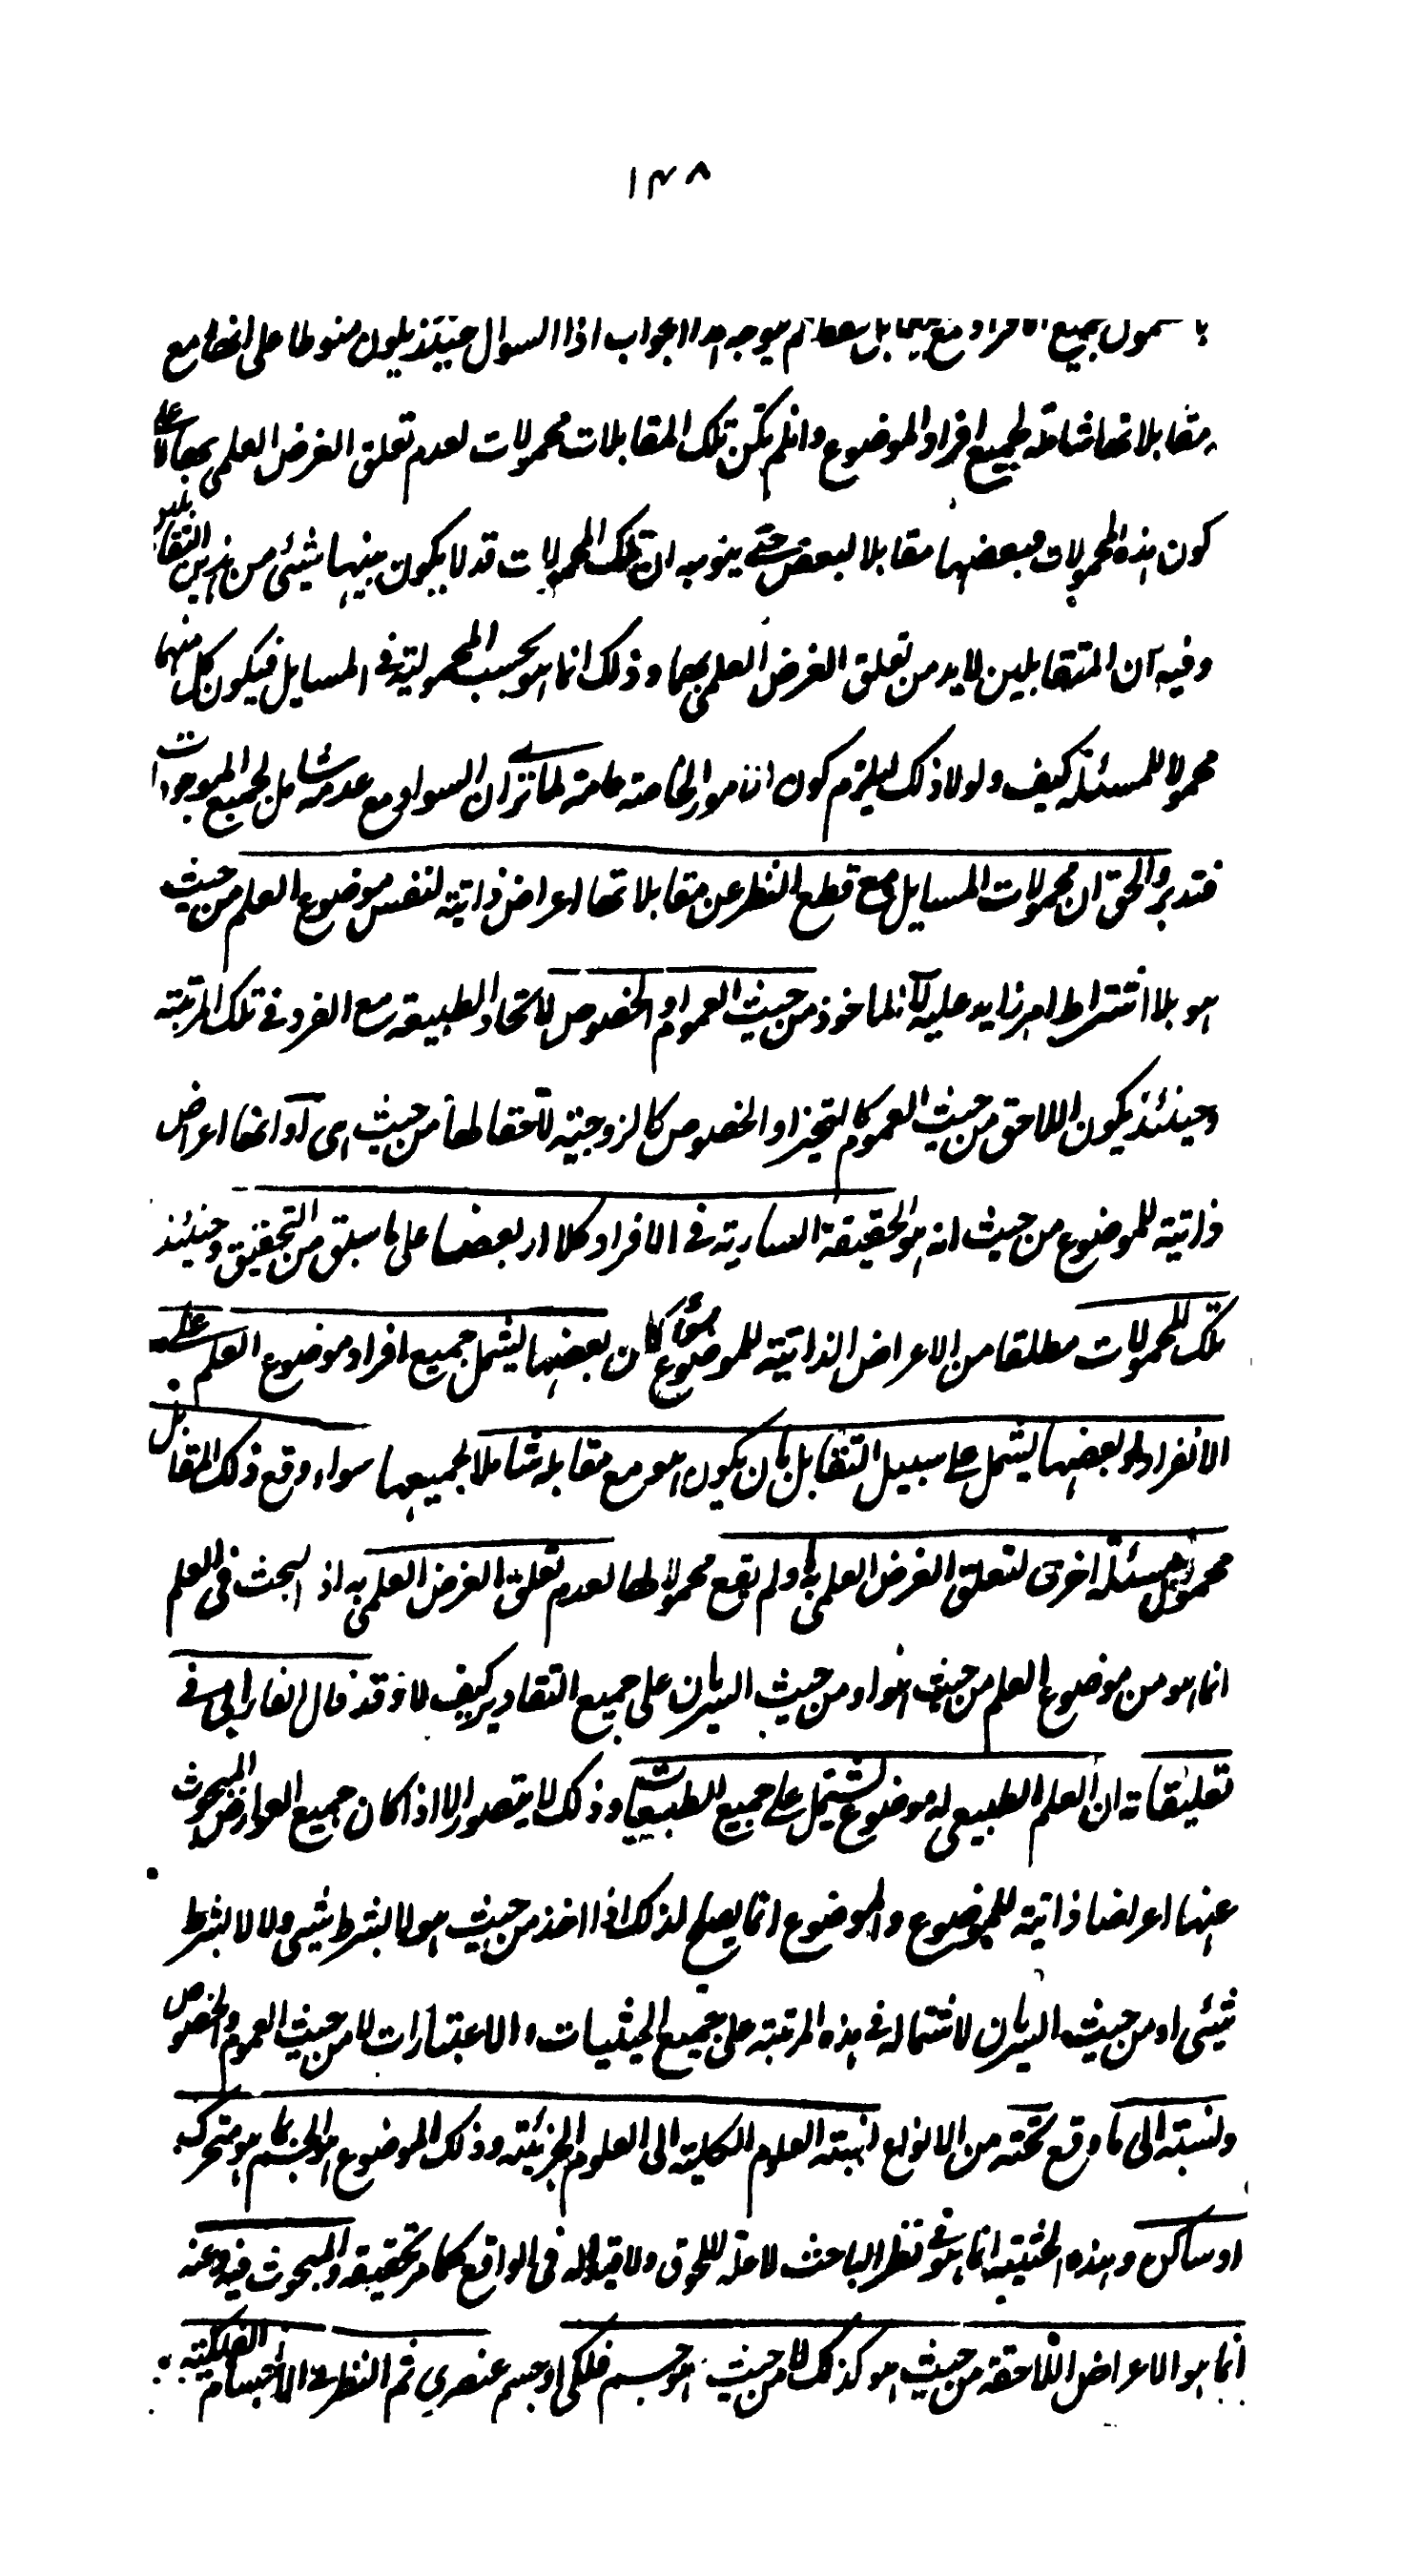 ١٣٨
الشمول لجميع الافراد مع مقابل فقط لم يتوجه هذا الجواب اذا السوال حينئذ يكون منوطا على انها مع
مقابلاتها شاملة لجميع افراد الموضوع وان لم تكن تلك المقابلات محمولات لعدم تعلق الغرض العلمي بها لا على
كون هذه المحمولات بعضها مقابلا لبعض حتى يتوجه ان تلك المحمولات قد لا يكون بينها شيئ من هذين التقابلين
وفيه ان المتقابلين لا بد من تعلق الغرض العلمي بهما وذلك انما هو بحسب المحمولية في المسايل فيكون كل منهما
محمولا للمسئلة كيف ولولا ذلك ليلزم كون الامور الخاصة عامة لما ترى ان السواد مع عدمه شامل لجميع الموجودات
فتدبر والحق ان محمولات المسايل مع قطع النظر عن مقابلاتها اعراض ذاتية لنفس موضوع العلم من حيث
هو بلا اشتراط امر زايد عليه لا الماخوذ من حيث العموم او الخصوص لاتحاد الطبيعة مع الفرد في تلك المرتبة
وحينئذ يكون اللاحق من حيث العموم كالتحيز او الخصوص كالزوجية لاحقا لها من حيث هي او انها اعراض
ذاتية للموضوع من حيث انه هو الحقيقة السارية في الافراد كلا او بعضا على ما سبق من التحقيق وحينئذ
تلك المحمولات مطلقا من الاعراض الذاتية للموضوع سواء كان بعضها يشمل جميع افراد موضوع العلم على
الانفراد او بعضها يشمل على سبيل التقابل بان يكون هو مع مقابله شاملا لجميعها سواء وقع ذلك المقابل
محمول مسئلة اخرى لتعلق الغرض العلمي به او لم يقع محمولا لها لعدم تعلق الغرض العلمي به اذ البحث في العلم
انما هو من موضوع العلم من حيث هو او من حيث السريان على جميع التقادير كيف لا وقد قال الفارابي في
تعليقاته ان العلم الطبيعي له موضوع يشتمل على جميع الطبيعيات وذلك لا يتصور الا اذا كان جميع العوارض المبحوث
عنها اعراضا ذاتية للموضوع والموضوع انما يصلح لذلك اذا اخذ من حيث هو لا بشرط شيئ ولا لا بشرط
شيئ او من حيث السريان لاشتماله في هذه المرتبة على جميع الحيثيات والاعتبارات لا من حيث العموم والخصوص
ونسبته الى ما وقع تحته من الانواع نسبة العلوم الكلية الى العلوم الجزئية وذلك الموضوع هو الجسم بما هو متحرك
او ساكن وهذه الحيثية انما هو في نظر الباحث لا علة للحوق ولا قيد له في الواقع كما مر تحقيقه والمبحوث فيه وعنه
انما هو الاعراض اللاحقة من حيث هو كذلك لا من حيث هو جسم فلكي او جسم عنصري ثم النظر في الاجسام الفلكية